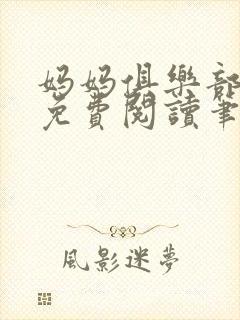 妈妈俱樂部
免費閱讀筆
風影迷夢